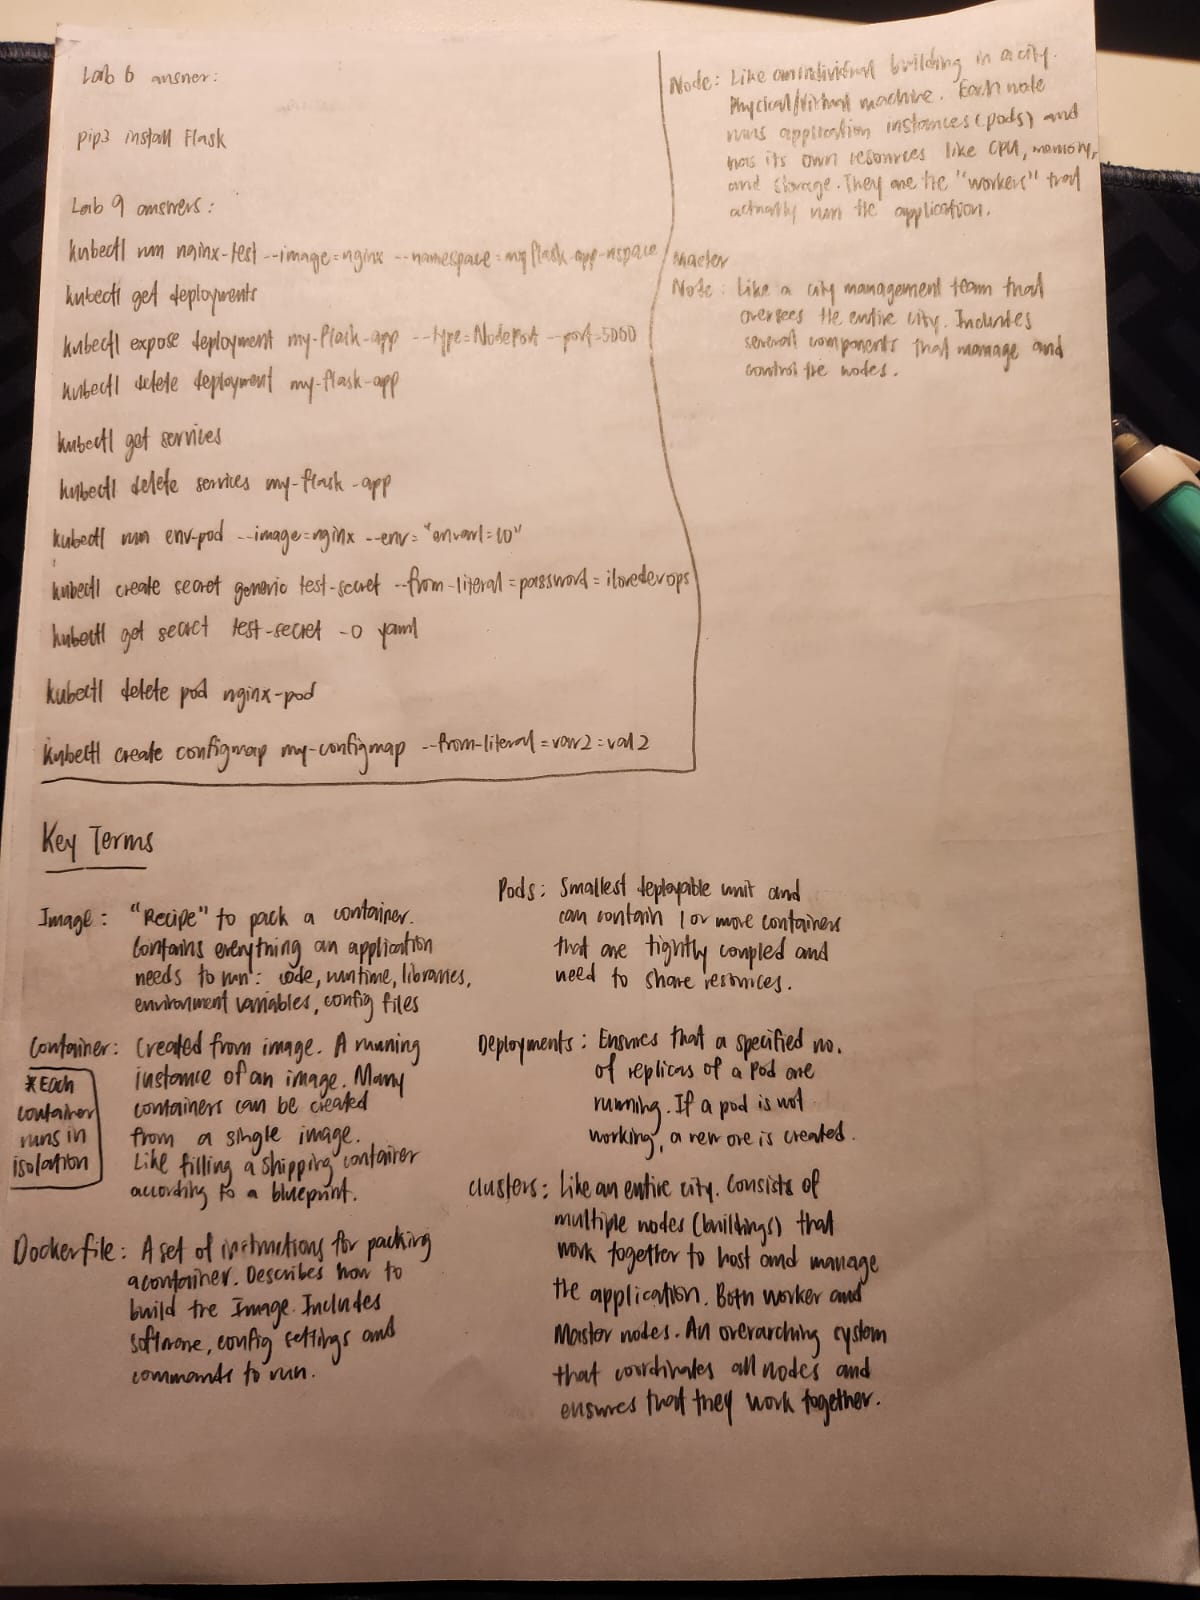 Lab 6 answer:
pip3 install Flask
Lab 9 answers:
kubectl run nginx-test --image=nginx --namespace=my-flask-app-nspace
kubectl get deployments
kubectl expose deployment my-flask-app --type=NodePort --port=5000
kubectl delete deployment my-flask-app
kubectl get services
kubectl delete services my-flask-app
kubectl run env-pod --image=nginx --env="envar1=10"
kubectl create secret generic test-secret --from-literal=password=ilovedevops
kubectl get secret test-secret -o yaml
kubectl delete pod nginx-pod
kubectl create configmap my-configmap --from-literal=var2=val2
Node: Like an individual building in a city.
Physical/Virtual machine. Each node
runs application instances (pods) and
has its own resources like CPU, memory,
and storage. They are the "workers" that
actually run the application.
Master
Node: Like a city management team that
oversees the entire city. Includes
several components that manage and
control the nodes.
Key Terms
Image: "Recipe" to pack a container.
Contains everything an application
needs to run: code, runtime, libraries,
environment variables, config files
Container: Created from image. A running
instance of an image. Many
containers can be created
from a single image.
Like filling a shipping container
according to a blueprint.
*Each
container
runs in
isolation
Dockerfile: A set of instructions for packing
a container. Describes how to
build the Image. Includes
software, config settings and
commands to run.
Pods: Smallest deployable unit and
can contain 1 or more containers
that are tightly coupled and
need to share resources.
Deployments: Ensures that a specified no.
of replicas of a Pod are
running. If a pod is not
working, a new one is created.
Clusters: Like an entire city. Consists of
multiple nodes (buildings) that
work together to host and manage
the application. Both worker and
Master nodes. An overarching system
that coordinates all nodes and
ensures that they work together.